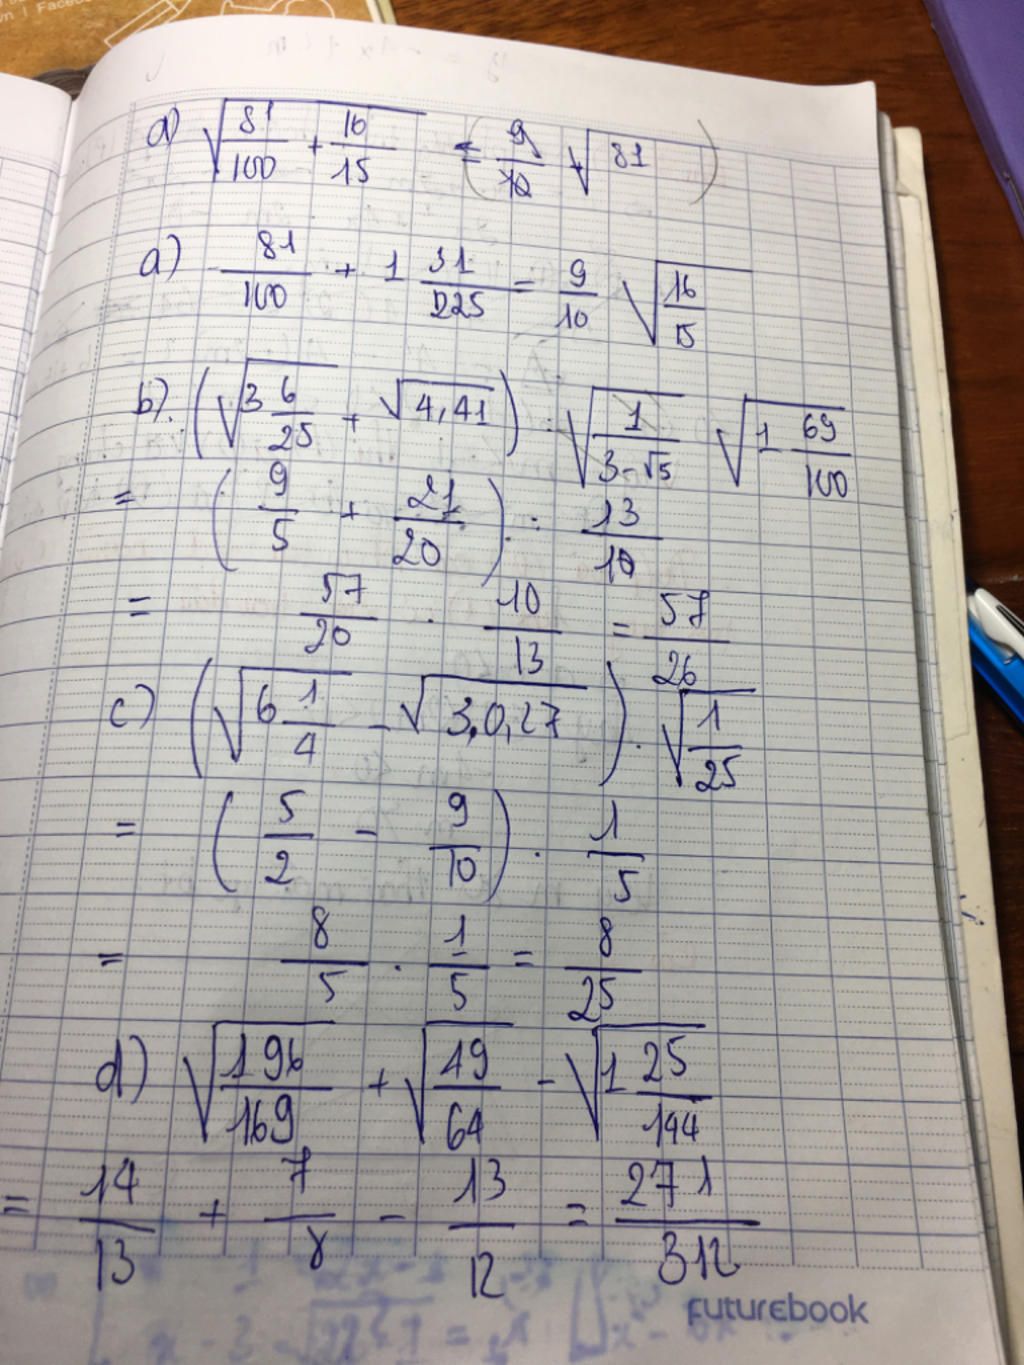 a) √(81/100 + 16/15) = (9/10 + √81)
a) 81/100 + 1 31/225 = 9/10 √(16/15)
b). (√(3 6/25) + √4,41) : √(1/(3-√5)) √(1 69/100)
= (9/5 + 21/20) : 13/10
= 57/20 . 10/13 = 57/26
c) (√(6 1/4) - √(3,0,27)) . √(1/25)
= (5/2 - 9/10) . 1/5
= 8/5 . 1/5 = 8/25
d) √(196/169) + √(49/64) - √(1 25/144)
= 14/13 + 7/8 - 13/12 = 271/312
FUTUREBOOK